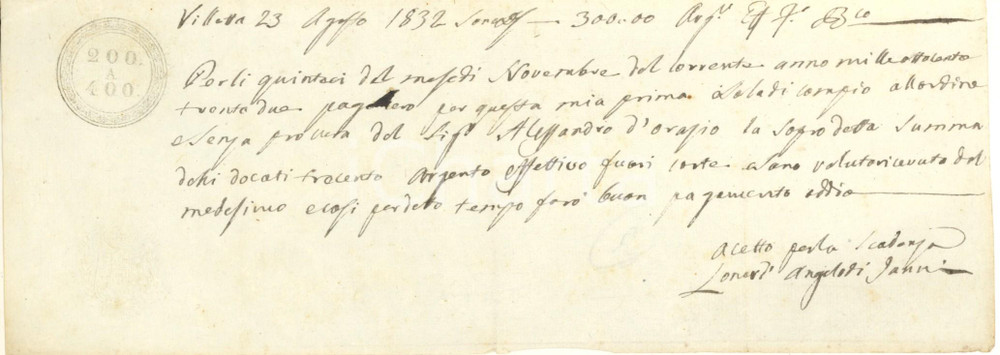 Villetta 23 Agosto 1832 300:00 Arg.to Eff.
200.
A
400.
Per li quindeci del mese di Novembre del corrente anno mille ottocento
trenta due pagherò per questa mia prima e sola di campio all'ordine
e senza procura del Sig.r Alessandro d'Orazio la sopradetta summa
dehi docati trecento Argento effettivo fuori carte e sono valuta ricevuta dal
medesimo e così per detto tempo farò buon pagamento addio
Acetto per la scadenza
Angelo di Janni